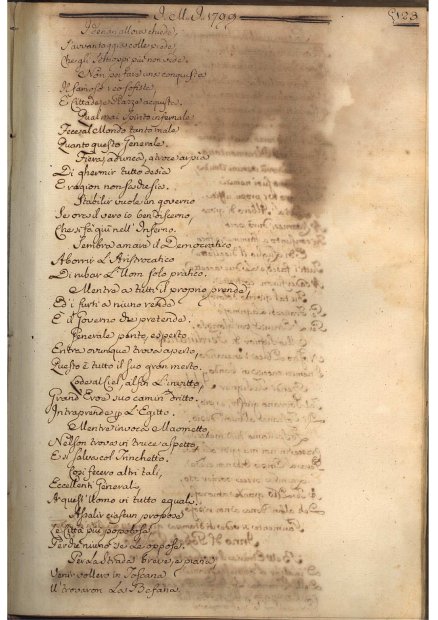 J. M. J. 1799
123
I denari allora chiede,
S'avvantaggia colle prede,
Che gli Schioppi più non vede.
Non poi fare una conquista
Il famoso
E Cittadi, e Piazze acquista.
Qual mai spirito infernale
Fece al Mondo tanto male
Quanto questo Generale.
Fiera adunca, atroce arpia
Di ghermir tutto desia
E ragion non sa che sia.
Stabilir vuole un governo
Se ora il vero io ben discerno,
Che si fà giù nell' Inferno.
Sembra amara il Democratico
Aborrir L'Aristocratico
Di rubar L'Uom solo pratico.
Mentre a tutti il proprio prende,
Ed i furti a niuno rende
E il Governo che pretende.
Generale perito, esperto
Entra ovunque trova aperto,
Questo è tutto il suo gran merto.
Loda al Ciel, alfin L'invitto,
Grand'Eroe suo camin dritto.
Intraprende p L'Egitto.
Mentre invoca Maometto,
Nelson trova in truce aspetto
E si salva col Trinchetto.
Così fecero altri tali,
Eccellenti Generali,
A quest' Uomo in tutto equali.
Assalir ciascun propose
Le Città più popolose,
Perchè niuno se le oppose.
Per la strada breve, e piana
Venir vollero in Toscana
E trovaron La Befana.